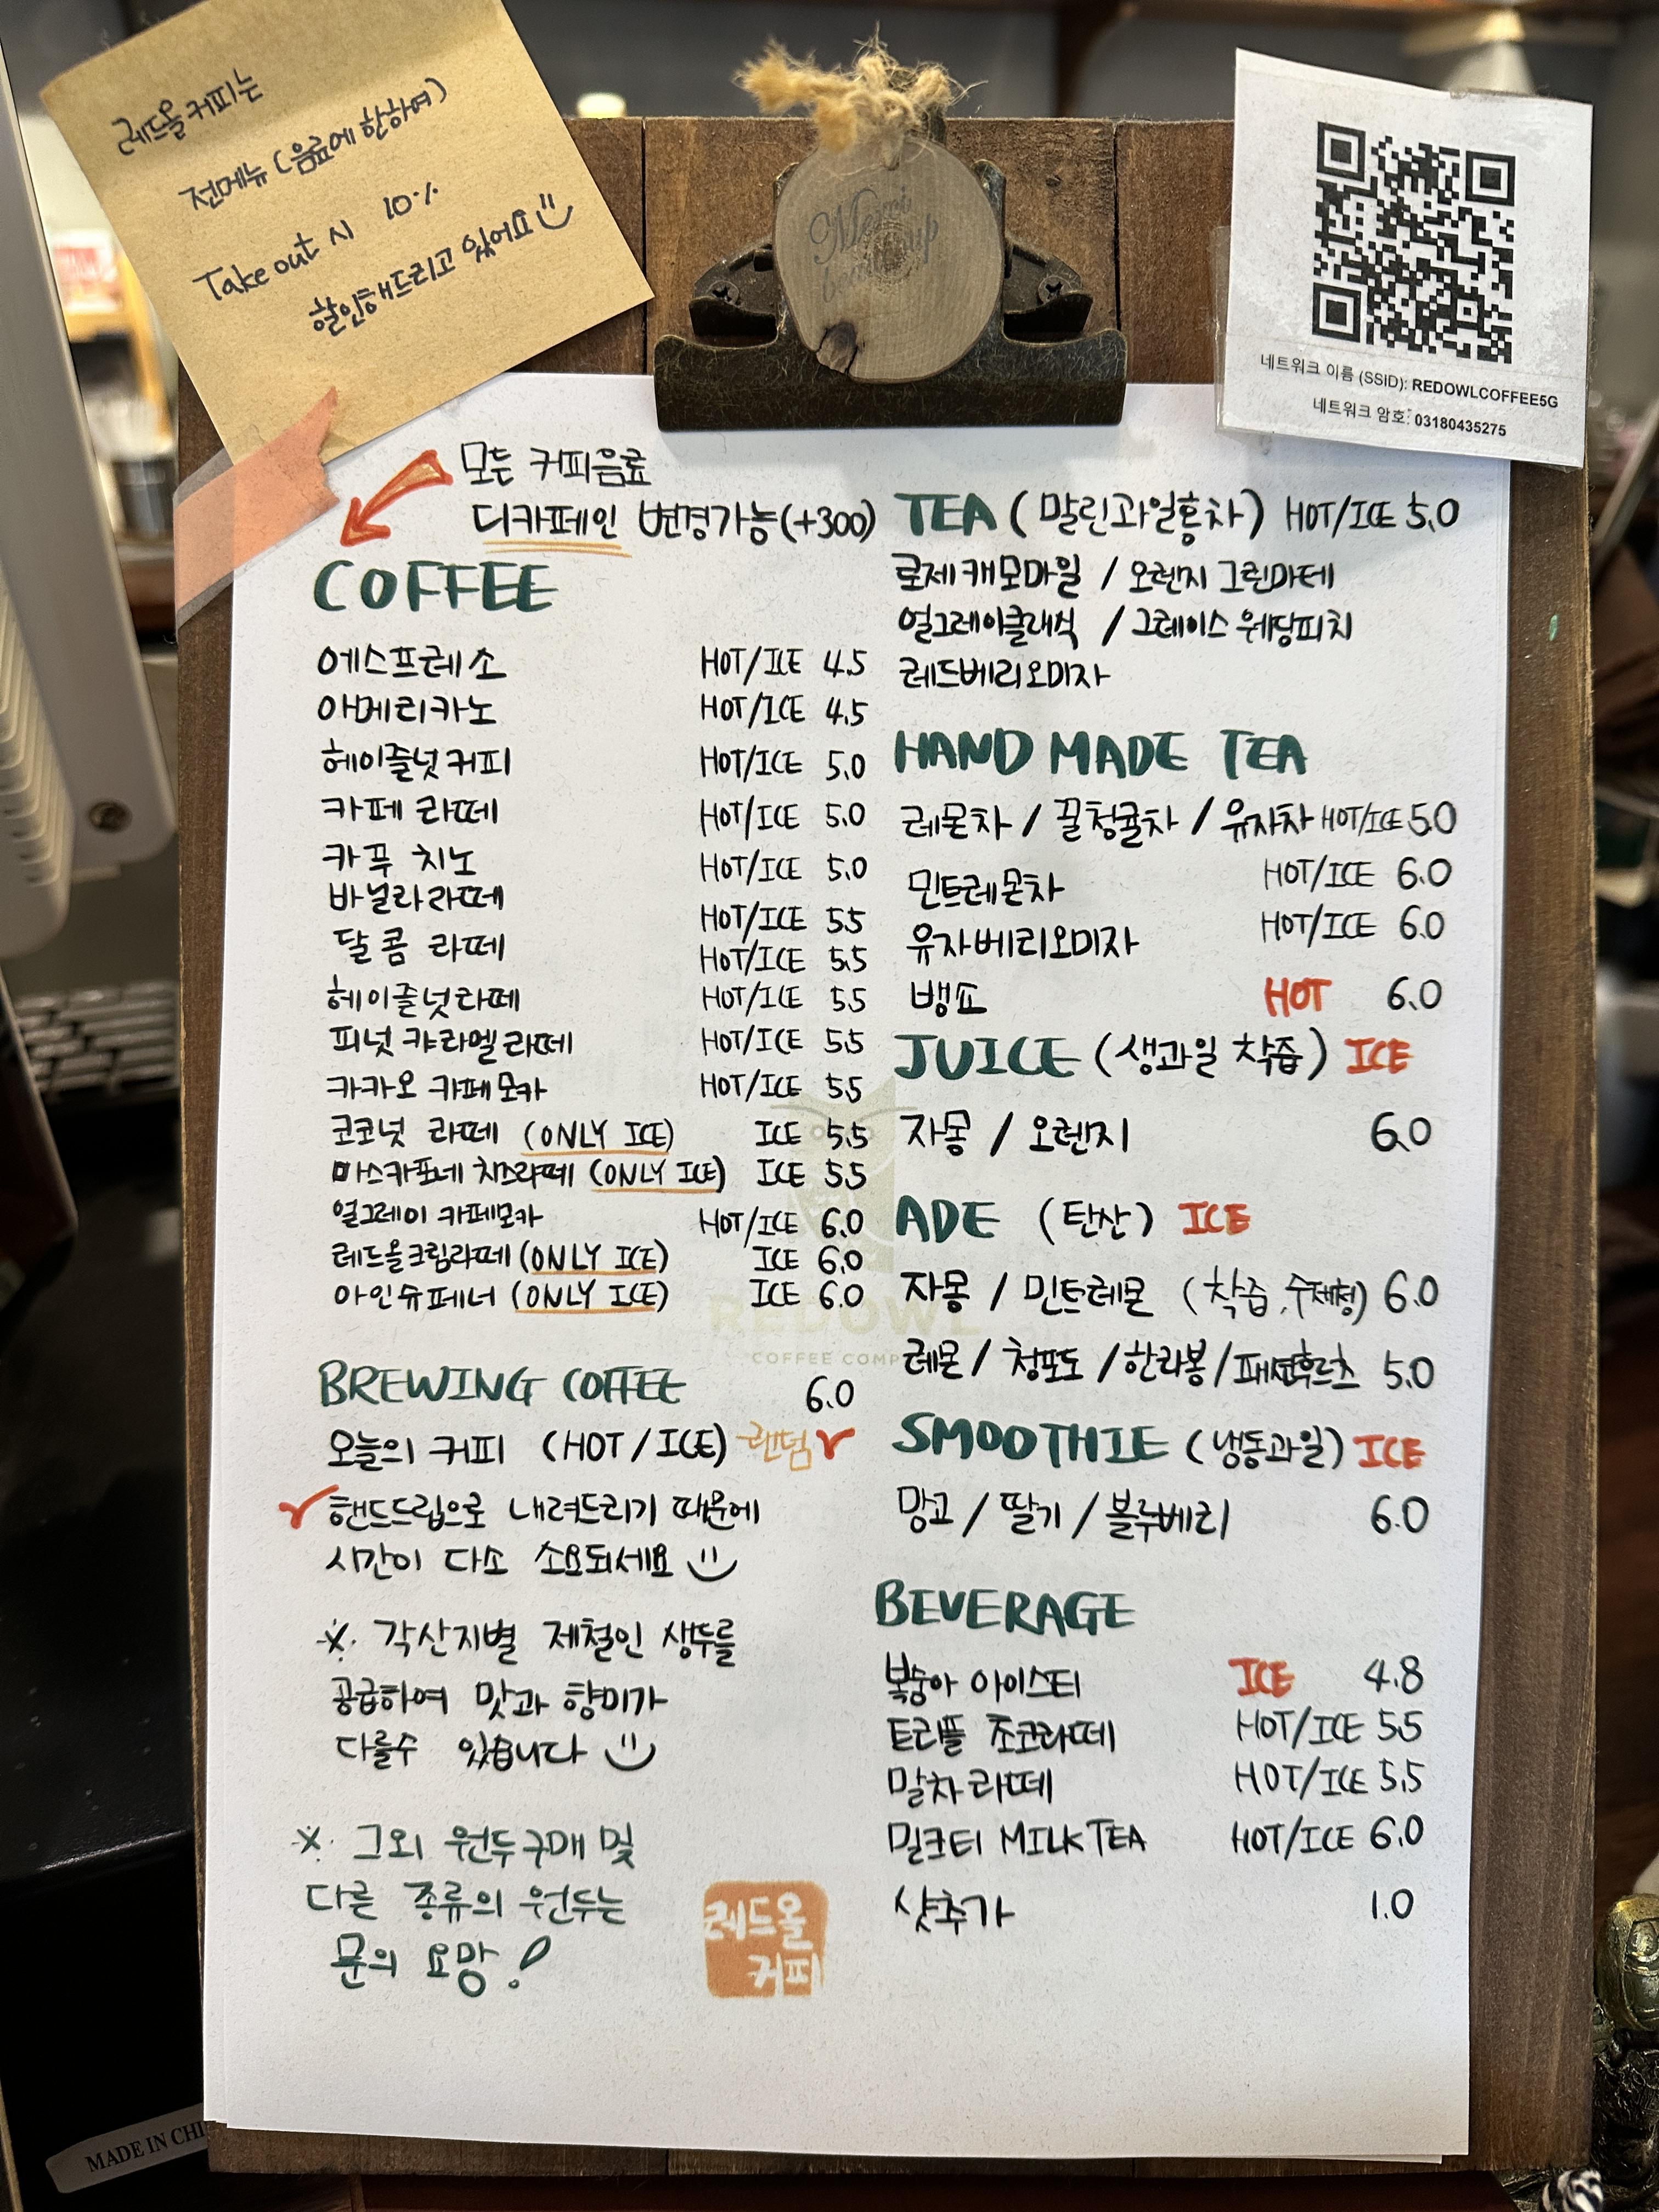 레드올커피는
전메뉴 (음료에 한하여)
Take out 시 10%
할인해드리고 있어요
네트워크 이름 (SSID): REDOWLCOFFEE5G
네트워크 암호: 03180435275
모든 커피음료
디카페인 변경가능(+300)
COFFEE
에스프레소 HOT/ICE 4.5
아메리카노 HOT/ICE 4.5
헤이즐넛커피 HOT/ICE 5.0
카페 라떼 HOT/ICE 5.0
카푸치노 HOT/ICE 5.0
바닐라라떼 HOT/ICE 5.5
달콤 라떼 HOT/ICE 5.5
헤이즐넛라떼 HOT/ICE 5.5
피넛 캬라멜라떼 HOT/ICE 5.5
카카오 카페모카 HOT/ICE 5.5
코코넛 라떼 (ONLY ICE) ICE 5.5
마스카포네 치즈라떼 (ONLY ICE) ICE 5.5
얼그레이 카페모카 HOT/ICE 6.0
레드올크림라떼 (ONLY ICE) ICE 6.0
아인슈페너 (ONLY ICE) ICE 6.0
BREWING COFFEE 6.0
오늘의 커피 (HOT/ICE) 랜덤
핸드드립으로 내려드리기 때문에
시간이 다소 소요되세요
※ 각산지별 제철인 생두를
공급하여 맛과 향미가
다를수 있습니다
※ 그외 원두구매 및
다른 종류의 원두는
문의 요망!
레드올
커피
TEA (말린과일홍차) HOT/ICE 5.0
로제캐모마일 / 오렌지 그린마테
얼그레이클래식 / 그레이스 웨딩피치
레드베리오미자
HAND MADE TEA
레몬차 / 꿀청귤차 / 유자차 HOT/ICE 5.0
민트레몬차 HOT/ICE 6.0
유자베리오미자 HOT/ICE 6.0
뱅쇼 HOT 6.0
JUICE (생과일 착즙) ICE
자몽 / 오렌지 6.0
ADE (탄산) ICE
자몽 / 민트레몬 (착즙, 수제청) 6.0
레몬 / 청포도 / 한라봉 / 패션후르츠 5.0
SMOOTHIE (냉동과일) ICE
망고 / 딸기 / 블루베리 6.0
BEVERAGE
복숭아 아이스티 ICE 4.8
트리플 쵸코라떼 HOT/ICE 5.5
말차라떼 HOT/ICE 5.5
밀크티 MILK TEA HOT/ICE 6.0
샷추가 1.0
REDOWL
MADE IN CHI